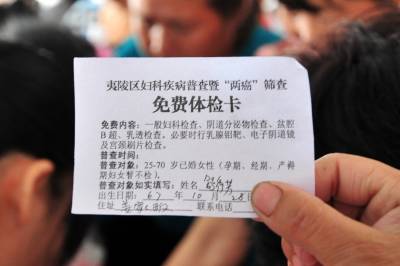 夷陵区妇科疾病普查暨“两癌”筛查
免费体检卡
免费内容：一般妇科检查、阴道分泌物检查、盆腔
B超、乳透检查。必要时行乳腺钼靶、电子阴道镜
及宫颈刷片检查。
普查时间：
普查对象：25-70 岁已婚女性（孕期、经期、产褥
期妇女暂不检）。
普查对象如实填写：姓名
出生日期：67 年 10 月 28日
住址： 联系电话